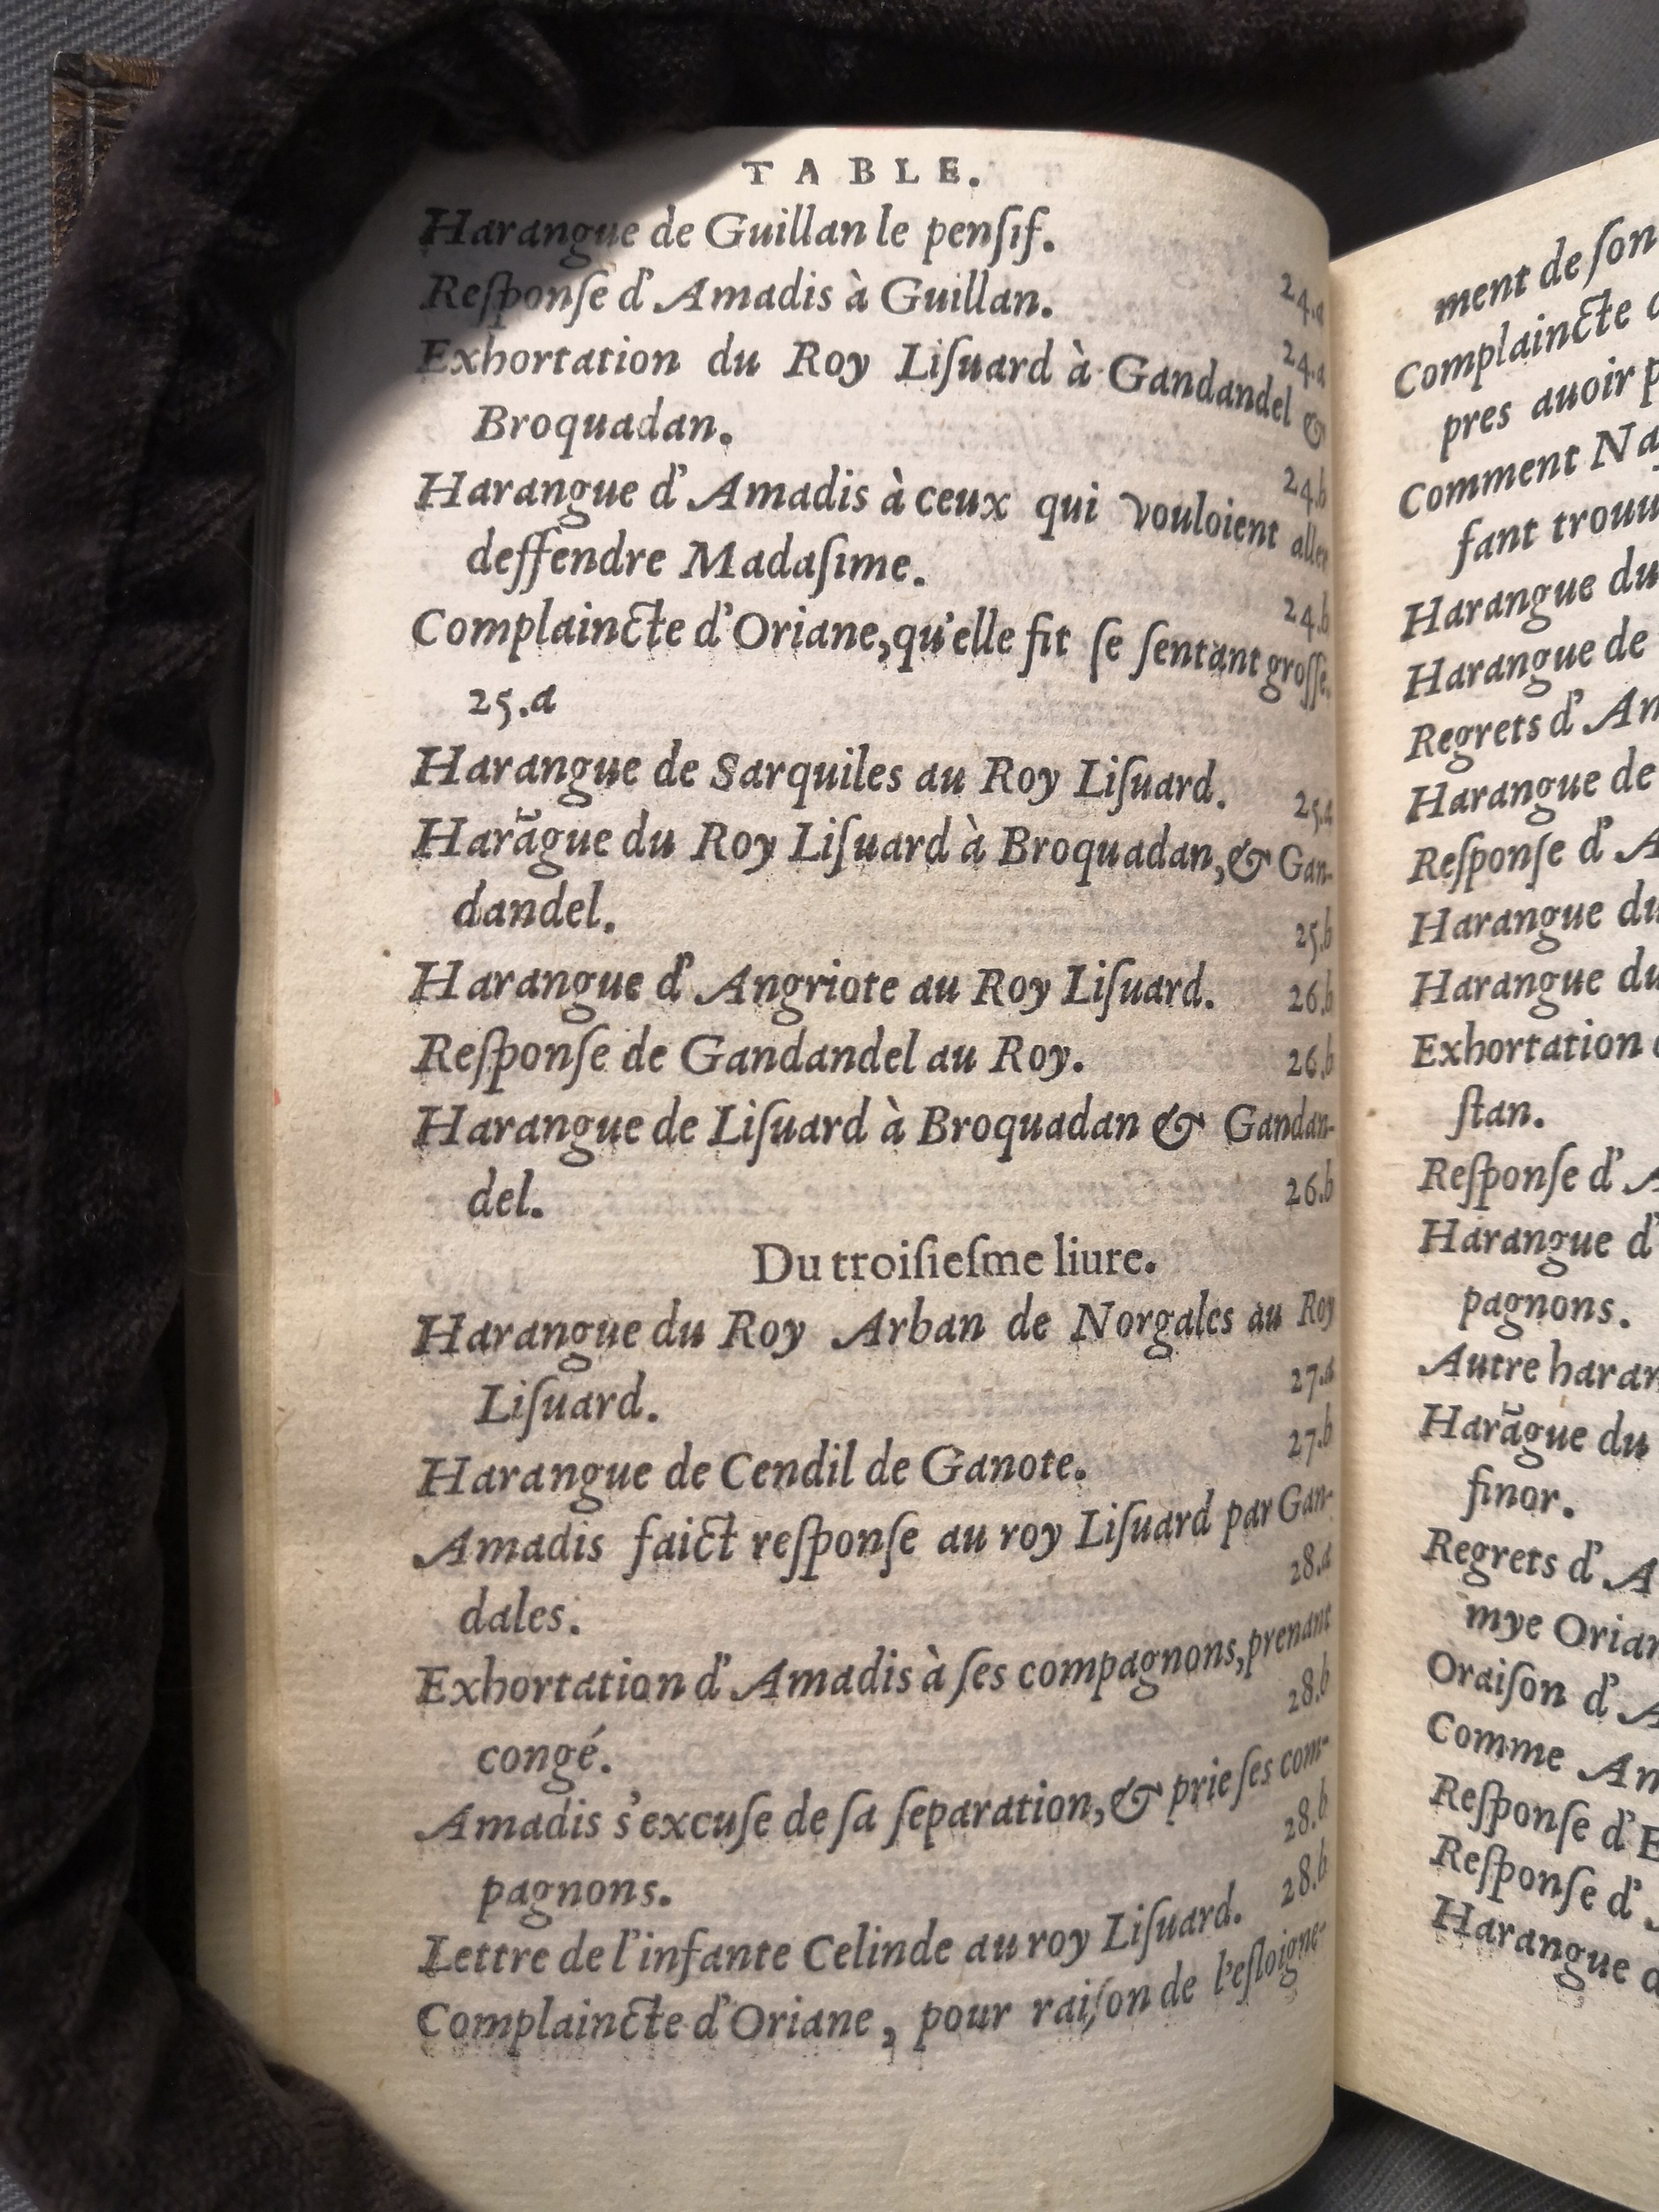 TABLE.
Harangue de Guillan le penſif. 24.a
Reſponſe d'Amadis à Guillan. 24.a
Exhortation du Roy Liſuard à Gandandel &
Broquadan. 24.b
Harangue d'Amadis à ceux qui vouloient aller
deffendre Madaſime. 24.b
Complaincte d'Oriane, qu'elle fit ſe ſentant groſſe.
25.a
Harangue de Sarquiles au Roy Liſuard. 25.a
Harãgue du Roy Liſuard à Broquadan, & Gan-
dandel. 25.b
Harangue d'Angriote au Roy Liſuard. 26.b
Reſponſe de Gandandel au Roy. 26.b
Harangue de Liſuard à Broquadan & Gandan-
del. 26.b
Du troiſieſme liure.
Harangue du Roy Arban de Norgales au Roy
Liſuard. 27.a
Harangue de Cendil de Ganote. 27.b
Amadis faict reſponſe au roy Liſuard par Gan-
dales. 28.a
Exhortation d'Amadis à ſes compagnons, prenant
congé. 28.b
Amadis s'excuſe de ſa ſeparation, & prie ſes com-
pagnons. 28.b
Lettre de l'infante Celinde au roy Liſuard. 28.b
Complaincte d'Oriane, pour raiſon de l'eſloigne-
ment de ſon
Complaincte
pres auoir
Comment
fant
Harangue du
Harangue de
Regrets
Harangue de
Reſponſe d'
Harangue du
Harangue du
Exhortation
ſtan.
Reſponſe d'
Harangue d'
pagnons.
Autre
Harãgue du
finor.
Regrets d'
mye
Oraiſon d'
Comme
Reſponſe d'
Reſponſe d'
Harangue